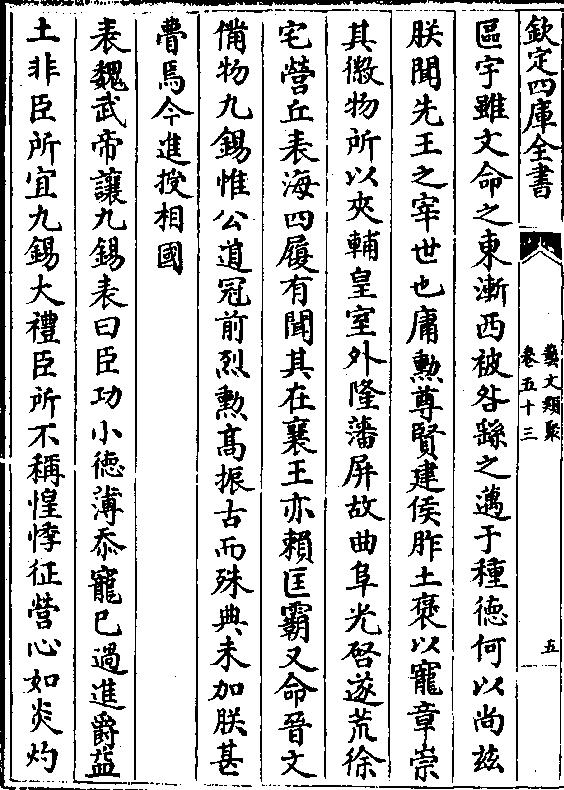 欽定四庫全書
藝文類聚
卷五十三
五
區宇雖文命之東漸西被咎繇之邁于種德何以尚兹
朕聞先王之宰世也庸勲尊賢建侯胙土褒以寵章崇
其徽物所以夾輔皇室外隆藩屏故曲阜光啓遂荒徐
宅營丘表海四履有聞其在襄王亦賴匡霸又命晉文
備物九錫惟公道冠前烈勲髙振古而殊典未加朕甚
瞢焉今進授相國
表魏武帝讓九錫表曰臣功小德薄忝寵已過進爵益
土非臣所宜九錫大禮臣所不稱惶悸征營心如炎灼